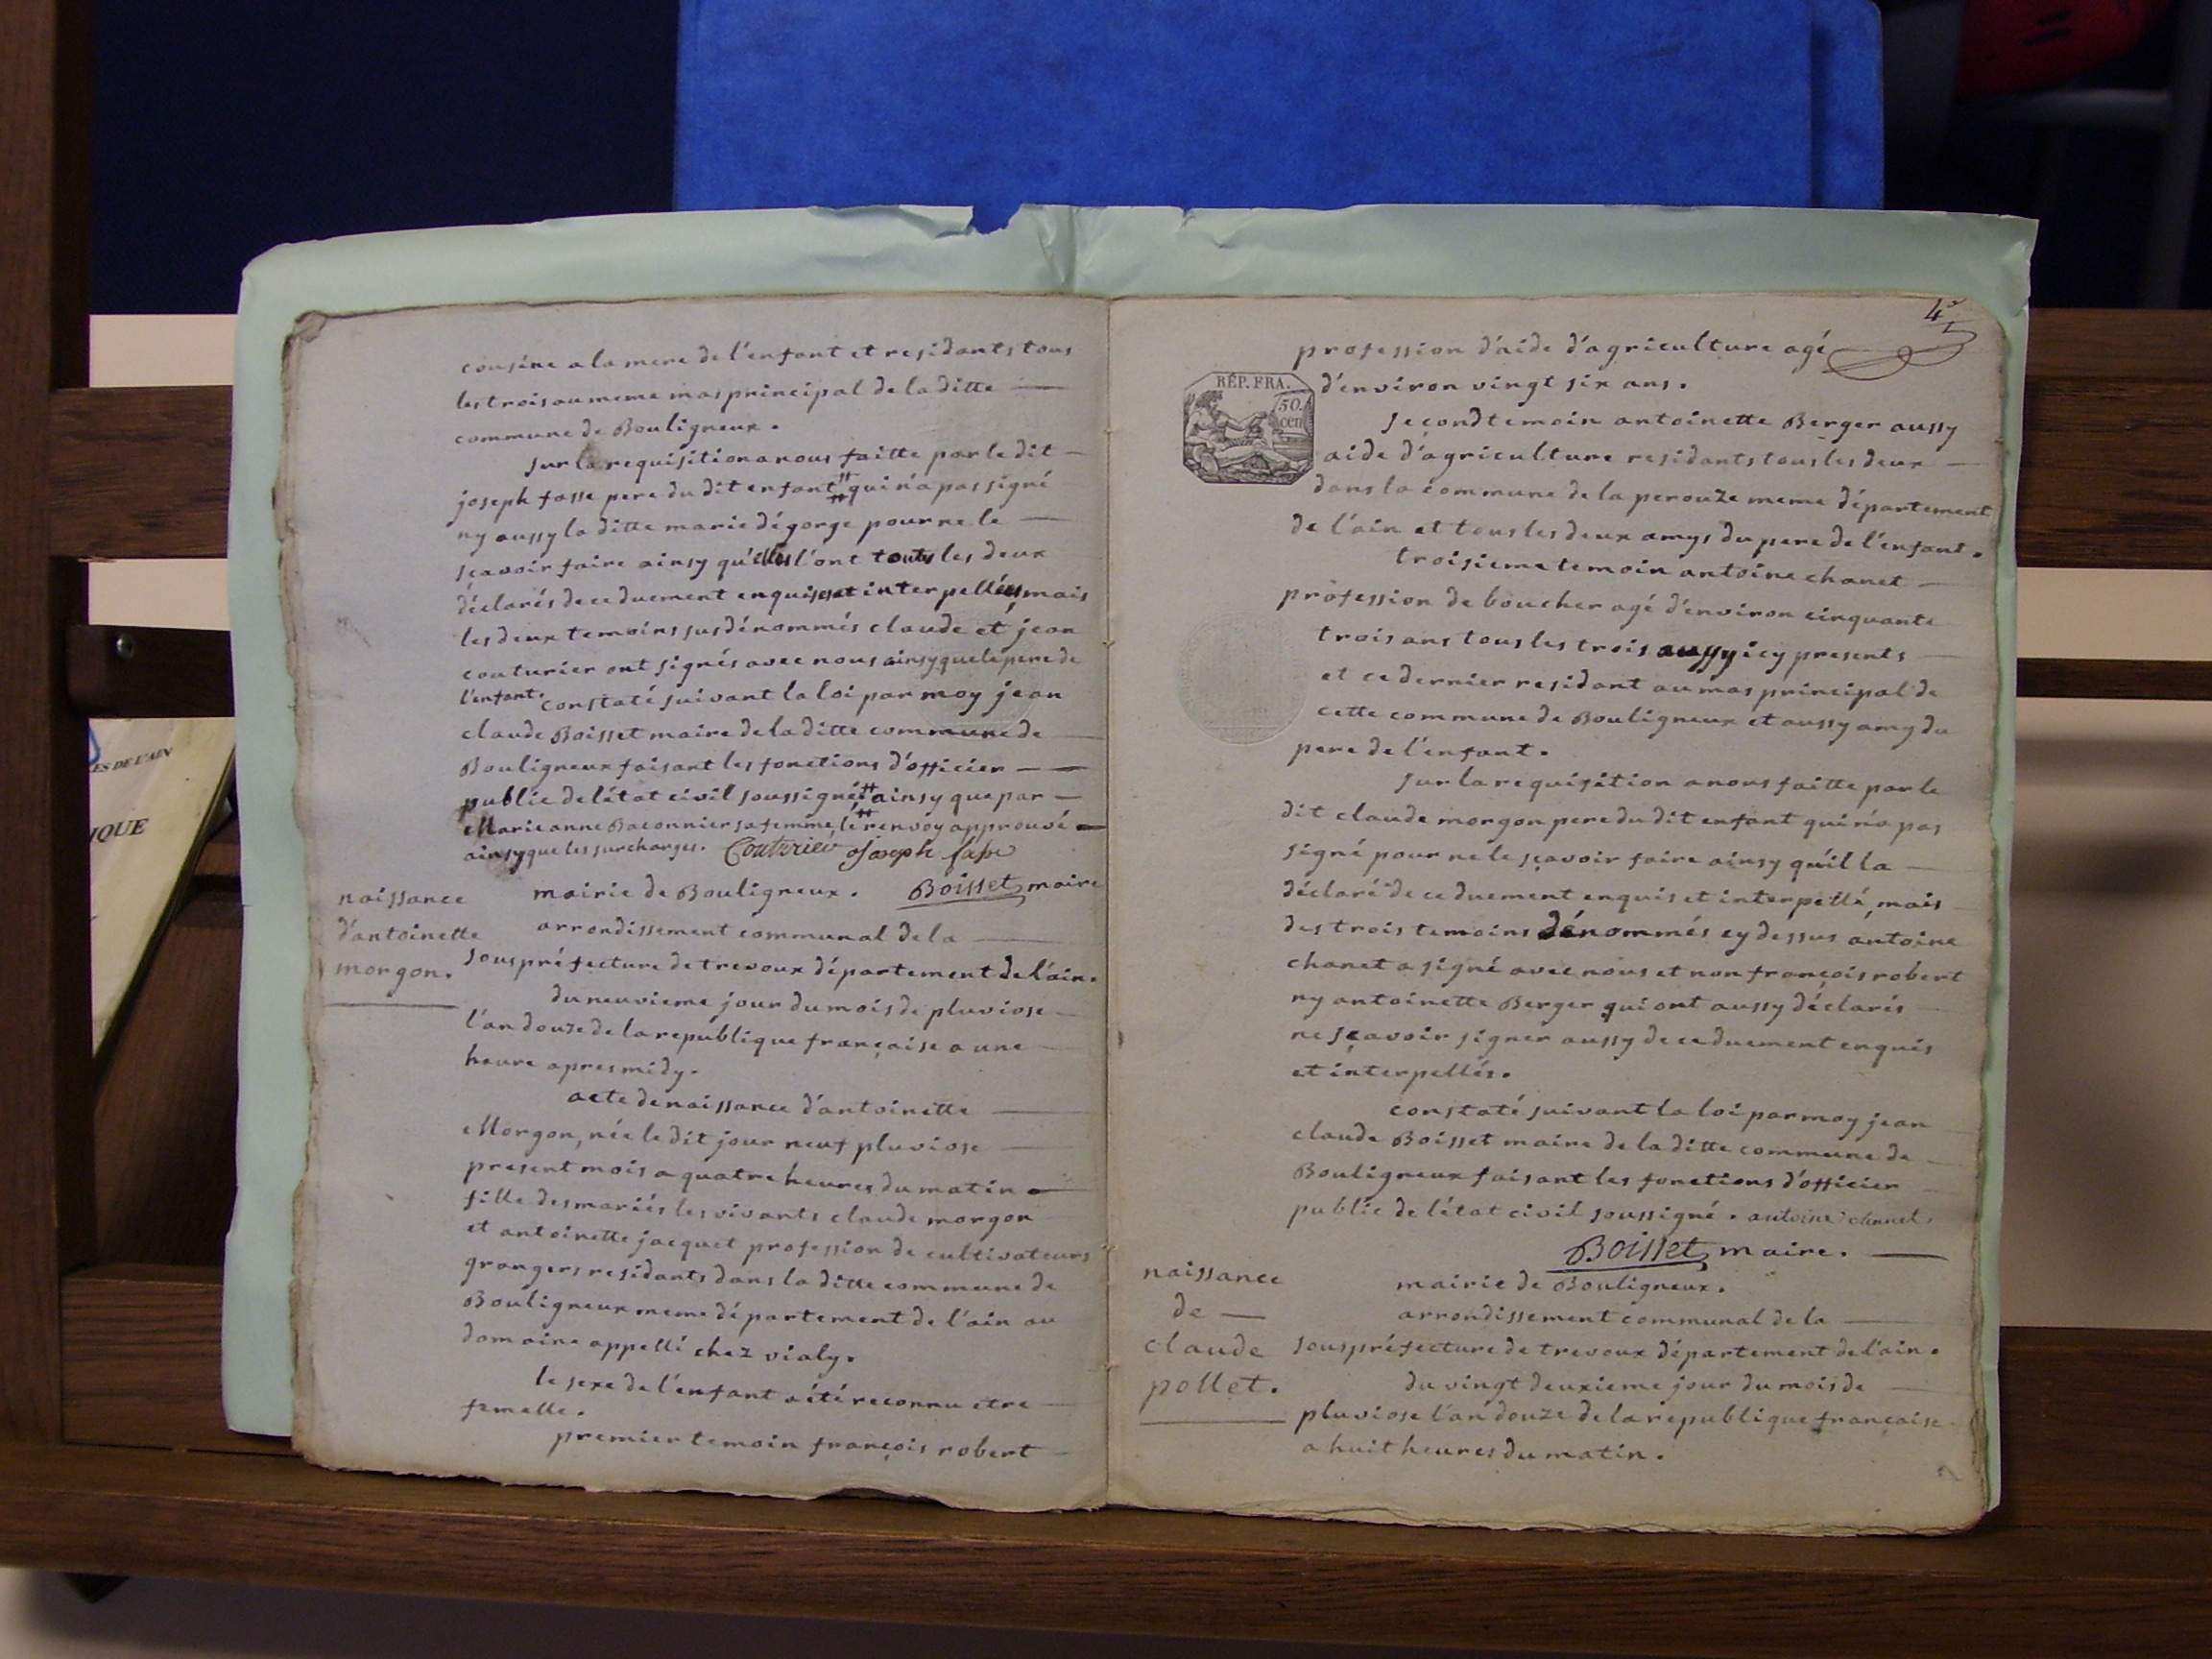 cousine a la mere de l'enfant et residants tous
les trois au meme mas principal de la ditte
commune de Bouligneux.
sur la requisition a nous faitte par le dit
joseph fasse pere du dit enfant # qui n'a pas signé
ny aussy la ditte marie dégorge pour ne le
sçavoir faire ainsy qu'elles l'ont toutes les deux
déclarés de ce duement enquises et interpellées, mais
les deux temoins susdénommés claude et jean
couturier ont signés avec nous ainsy que le pere de
l'enfant. constaté suivant la loi par moy jean
claude Boisset maire de la ditte commune de
Bouligneux faisant les fonctions d'officier
public de l'état civil soussigné # ainsy que par
Marie anne Baconnier sa femme, le # renvoy approuvé
ainsy que les surcharges. Couturier joseph fasse
Boisset maire
naissance
d'antoinette
morgon.
mairie de Bouligneux.
arrondissement communal de la
souspréfecture de trevoux département de l'ain.
du neuvieme jour du mois de pluviose
l'an douze de la republique française a une
heure apres midy.
acte de naissance d'antoinette
Morgon, née le dit jour neuf pluviose
present mois a quatre heures du matin
fille des mariés les vivants claude morgon
et antoinette jacquet profession de cultivateurs
grangers residants dans la ditte commune de
Bouligneux meme département de l'ain au
domaine appellé chez vialy.
le sexe de l'enfant a été reconnu etre
femelle.
premier temoin françois robert
4
profession d'aide d'agriculture agé
d'environ vingt six ans.
RÉP. FRA.
50.
cen
second temoin antoinette Berger aussy
aide d'agriculture residants tous les deux
dans la commune de la perouze meme département
de l'ain et tous les deux amys du pere de l'enfant.
troisieme temoin antoine chanet
profession de boucher agé d'environ cinquante
trois ans tous les trois aussy icy presents
et ce dernier residant au mas principal de
cette commune de Bouligneux et aussy amy du
pere de l'enfant.
sur la requisition a nous faitte par le
dit claude morgon pere du dit enfant qui n'a pas
signé pour ne le sçavoir faire ainsy qu'il la
déclaré de ce duement enquis et interpellé, mais
des trois temoins dénommés cy dessus antoine
chanet a signé avec nous et non françois robert
ny antoinette Berger qui ont aussy déclarés
ne sçavoir signer aussy de ce duement enquis
et interpellés.
constaté suivant la loi par moy jean
claude Boisset maire de la ditte commune de
Bouligneux faisant les fonctions d'officier
public de l'état civil soussigné. antoine chanet
Boisset maire.
naissance
de
claude
pollet.
mairie de Bouligneux.
arrondissement communal de la
souspréfecture de trevoux département de l'ain.
du vingt deuxieme jour du mois de
pluviose l'an douze de la republique française
a huit heures du matin.
ES DE L'AIN
IQUE